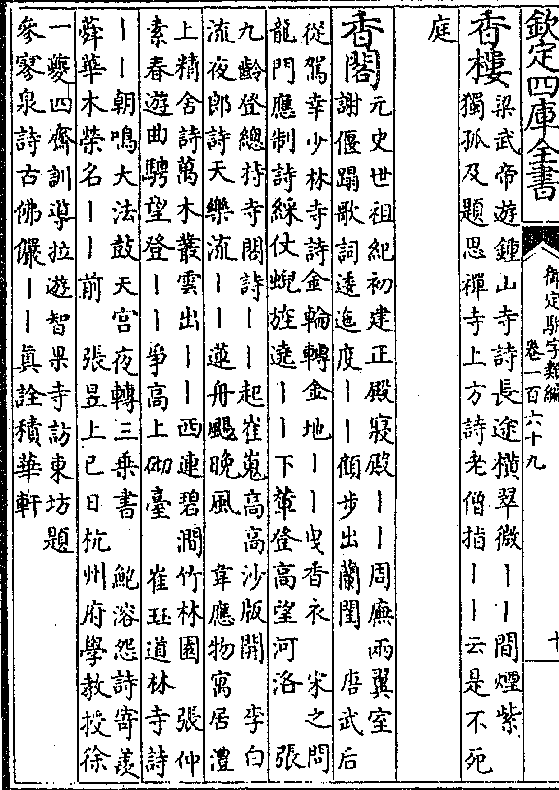 欽定四庫全書
御定駢字類編
卷一百六十九
十
香樓
梁武帝遊鍾山寺詩長途橫翠微丨丨間煙紫
獨孤及題思禪寺上方詩老僧指丨丨云是不死
庭
香閣
元史世祖紀初建正殿寢殿丨丨周廡兩翼室
謝偃蹋歌詞逶迤度丨丨顧步出蘭閨 唐武后
從駕幸少林寺詩金輪轉金地丨丨曳香衣 宋之問
龍門應制詩綵仗蜺旌遶丨丨下輦登高望河洛 張
九齡登總持寺閣詩丨丨起崔嵬高高沙版開 李白
流夜郎詩天樂流丨丨蓮舟颺晚風 韋應物寓居澧
上精舍詩萬木叢雲出丨丨西連碧澗竹林園 張仲
素春遊曲騁望登丨丨爭高上砌臺 崔珏道林寺詩
丨丨朝鳴大法鼓天宮夜轉三乗書 鮑溶怨詩寄羨
蕣華木榮名丨丨前 張昱上巳日杭州府學教授徐
一夔四齋訓導拉遊智果寺訪東坊題
參寥泉詩古佛儼丨丨眞詮積華軒